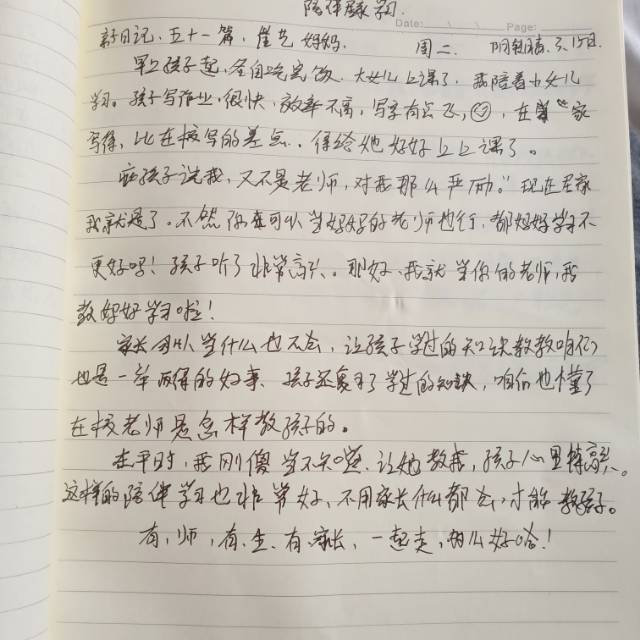 陪伴练习.
Date: Page:
亲子日记. 五十一篇, 佳艺 妈妈. 周二. 阴转晴. 3. 15日
早上孩子起, 各自吃完饭, 大女儿上课了, 我陪着小女儿
学习。孩子写作业, 很快, 效率不高, 写字有点飞, 在 "家
写得, 比在校写的差点.. 得给她好好上上课了。
孩子说我, 又不是老师, 对我那么严励。" 现在在家
我就是了。不然你在可以当妈妈的老师也行, 都妈妈学习不
更好吗! 孩子听了非常高兴。那好、我就当你的老师, 我
教妈妈学习啦!
家长可以当什么也不会, 让孩子学过的知识教教咱们
也是一举两得的好事、孩子还复习了学过的知识, 咱们也懂了
在校老师是怎样教孩子的。
在平时, 我刚傻当不知道、让她教我, 孩子心里特高兴。
这样的陪伴学习也非常好, 不用家长什么都会, 才能教孩子。
有, 师, 有, 生、有家长, 一起走, 那么好哈!